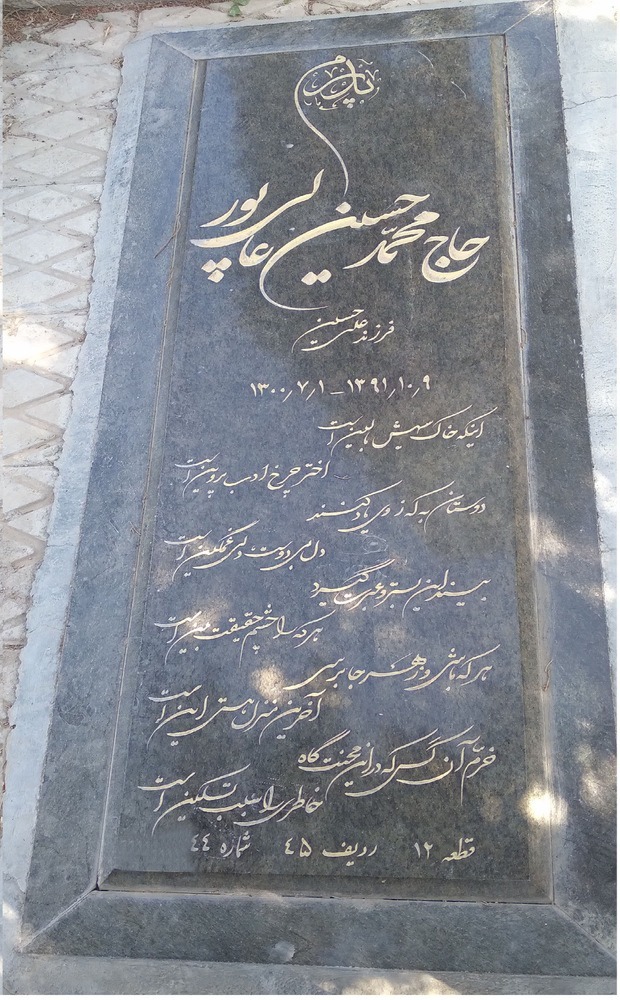 پدرم
حاج محمد حسین عالی پور
فرزند علی حسین
۱۳۰۰٫۷٫۱ - ۱۳۹۱٫۱۰٫۹
اینکه خاک سیهش بالین است
اختر چرخ ادب پروین است
دوستان به که ز وی یاد کنند
دل بی دوست دلی غمگین است
بیند این بستر و عبرت گیرد
هر که را چشم حقیقت بین است
هر که باشی و ز هر جا برسی
آخرین منزل هستی این است
خرم آن کس که در این محنت گاه
خاطری را سبب تسکین است
قطعه ۱۲ ردیف ۴۵ شماره ۴۴